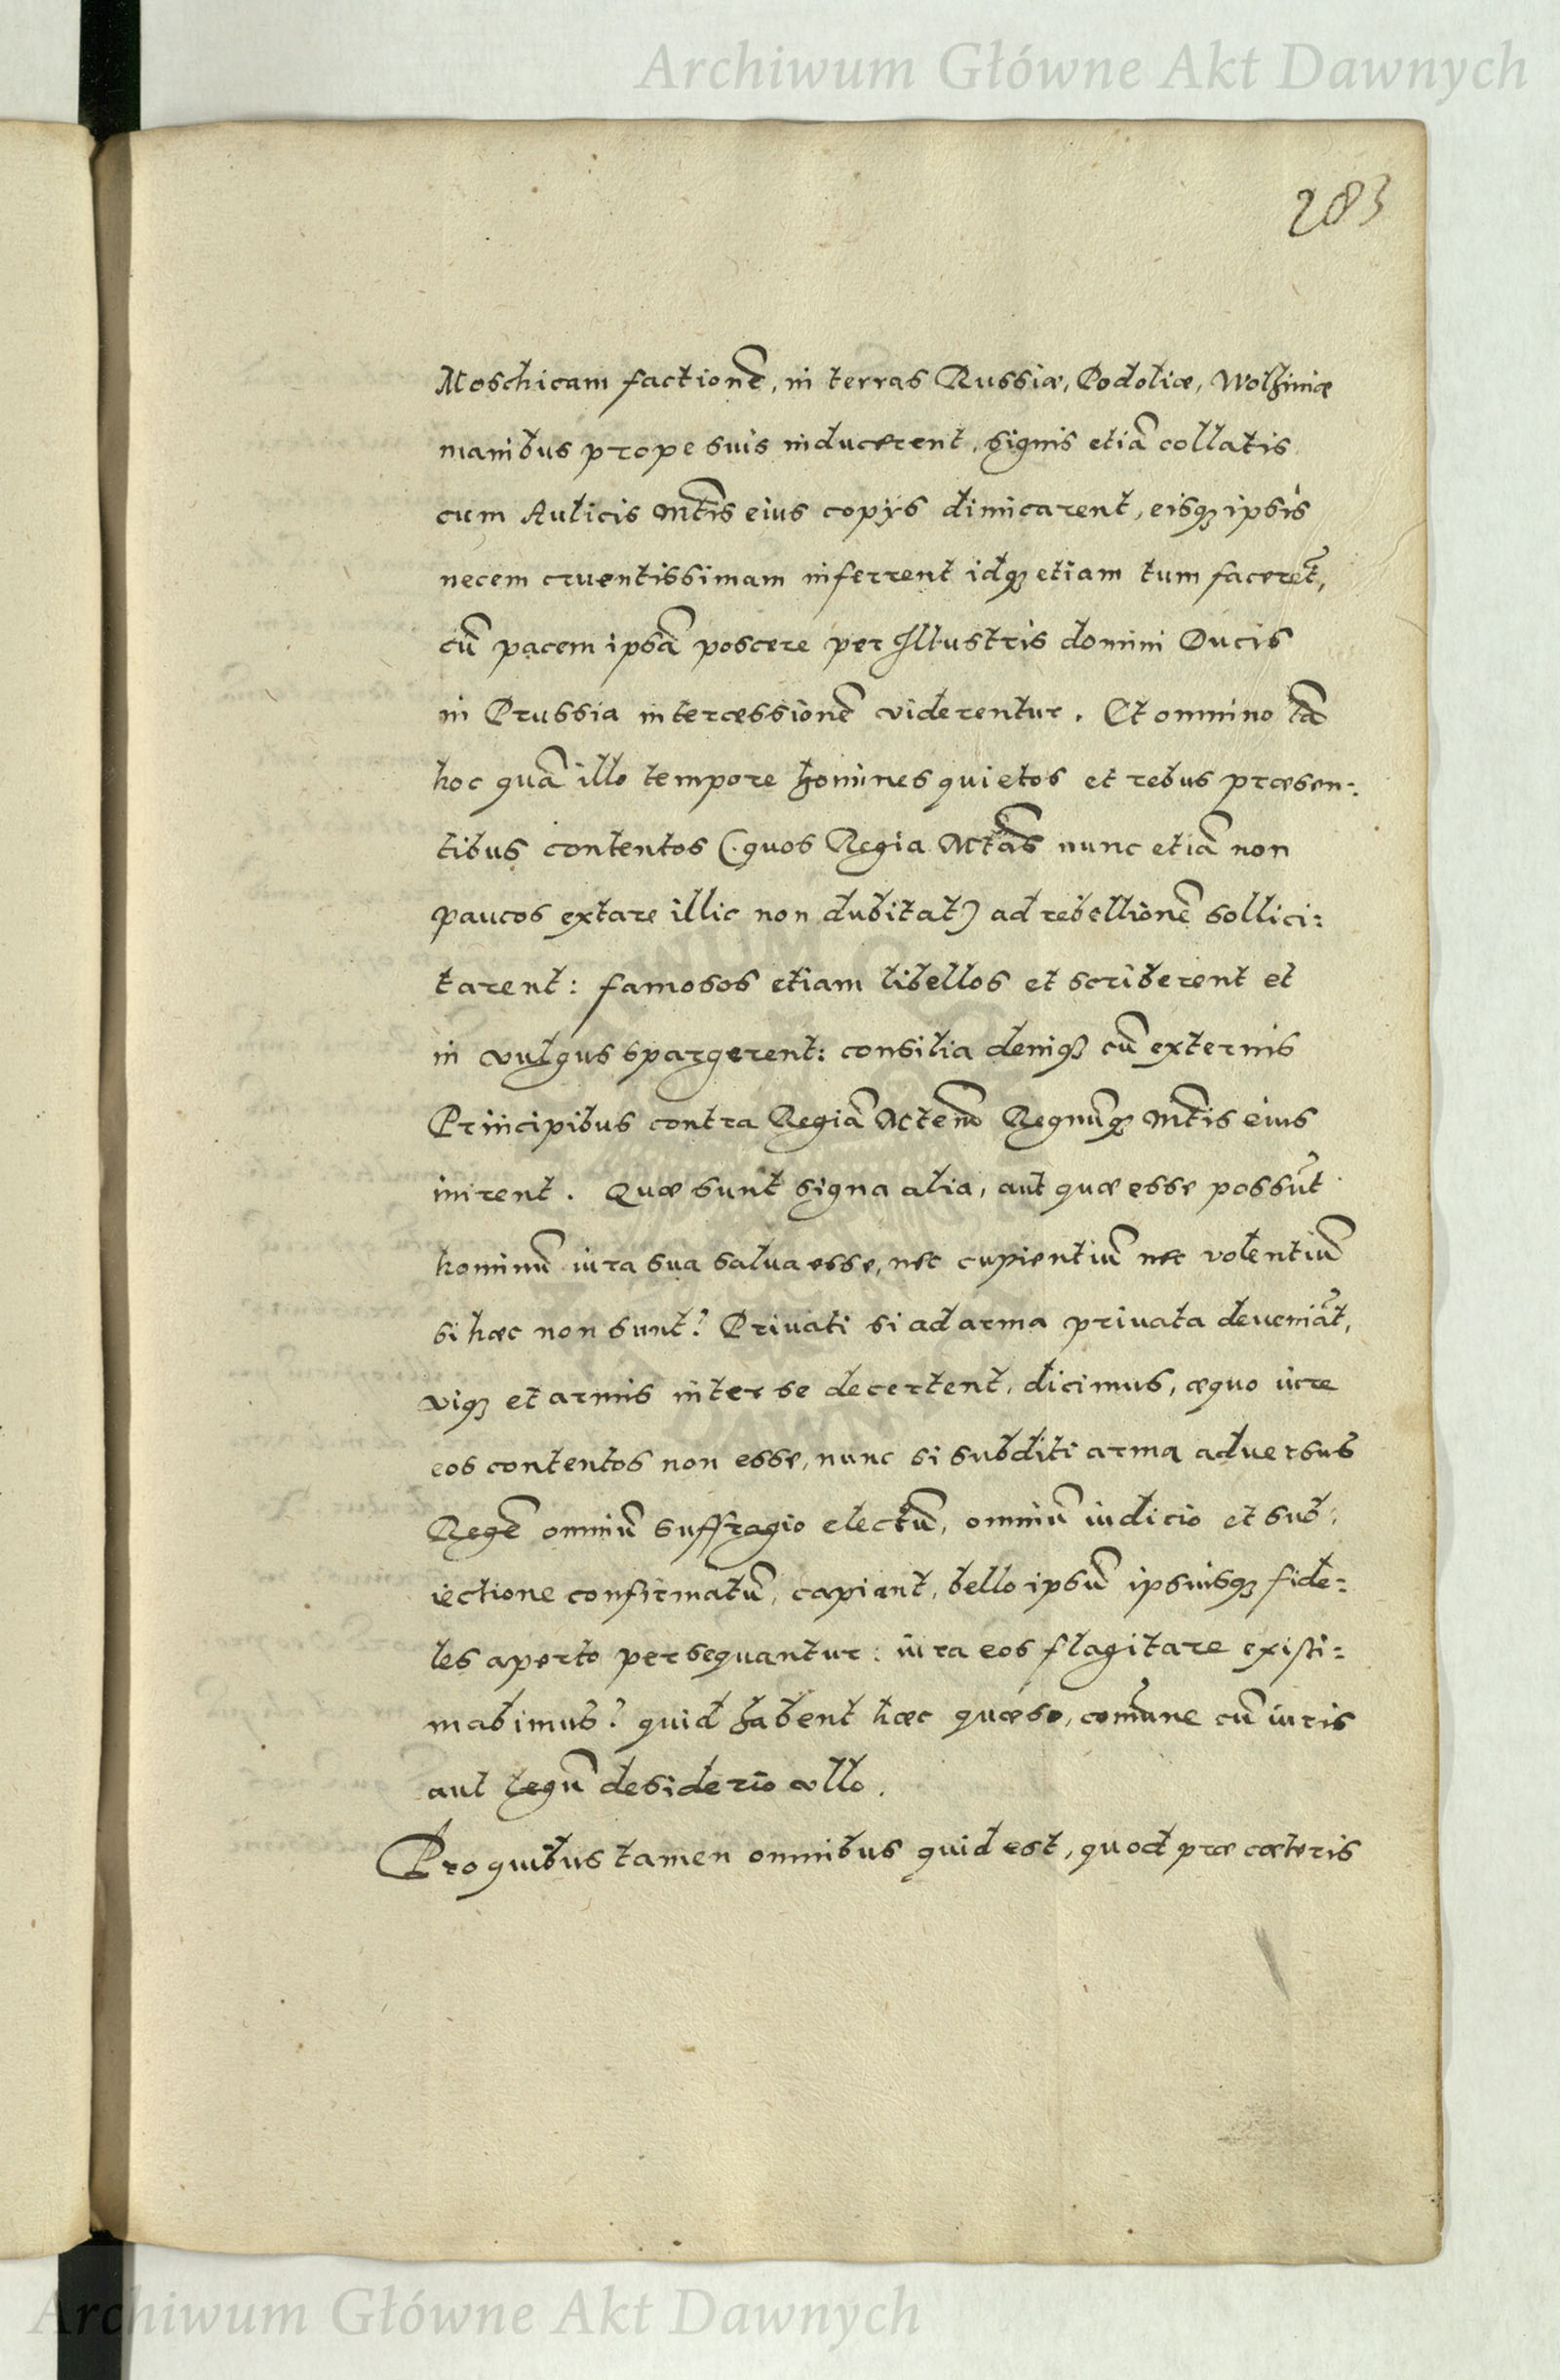 Archiwum Główne Akt Dawnych
283
Moschicam factionẽ, in terras Russiæ, Podoliæ, Wolhiniæ
manibus prope suis inducerent, signis etiã collatis
cum Aulicis Mtis eius copijs dimicarent, eisq₃ ipsis
necem cruentissimam inferrent idq₃ etiam tum facerẽt,
cũ pacem ipsã poscere per Illustris domini Ducis
in Prussia intercessionẽ viderentur. Et omnino tã
hoc quã illo tempore homines quietos et rebus præsen:
tibus contentos (: quos Regia Mtas nunc etiã non
paucos extare illic non dubitat) ad rebellionẽ sollici:
tarent: famosos etiam libellos et scriberent et
in vulgus spargerent: consilia deniq₃ cũ externis
Principibus contra Regiã Mtem Regnũq₃ Mtis eius
inirent. Quæ sunt signa alia, aut quæ esse possũt
hominũ iura sua salua esse, nec cupientiũ nec volentiũ
si hæc non sunt? Priuati si ad arma priuata deueniãt,
viq₃ et armis inter se decertent, dicimus, æquo iure
eos contentos non esse, nunc si subditi arma aduersus
Regẽ omniũ suffragio electũ, omniũ iudicio et sub:
iectione confirmatũ, capiant, bello ipsũ ipsiusq₃ fide:
les aperto persequantur: iura eos flagitare existi:
mabimus? quid habent hæc quæso, com̃une cũ iuris
aut legũ desiderio vllo.
Pro quibus tamen omnibus quid est, quod præ cæteris
Archiwum Główne Akt Dawnych